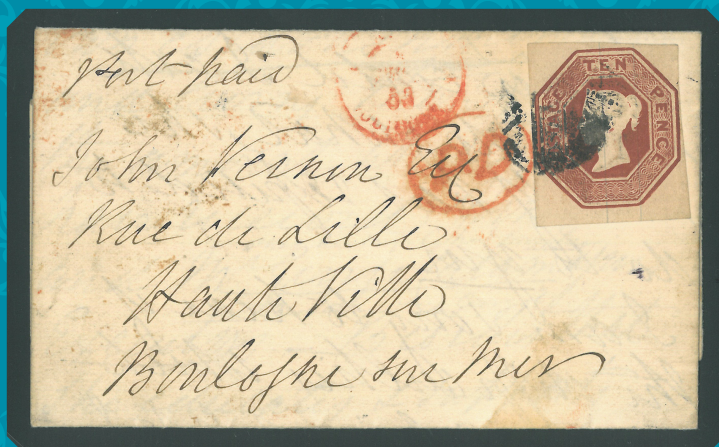 Post paid
John Vernon Esq
Rue de Lille
Haute Ville
Boulogne sur Mer
P.D
POSTAGE TEN PENCE